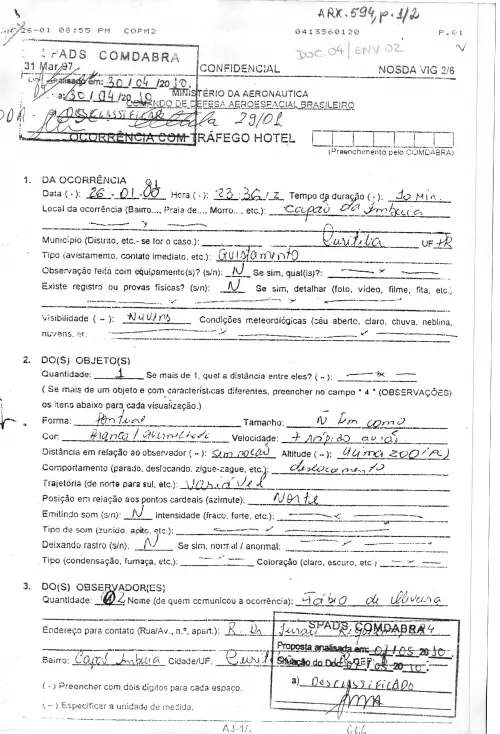 ARX.594, p.1/2
26-01 08:55 PM COPM2 0413560120 P.01
DOC 04 / ENV 02
SPADS COMDABRA
31 Mar 97 CONFIDENCIAL NOSDA VIG 2/6
Analisado em: 30/04/2010.
a: 30/04/2010 MINISTÉRIO DA AERONÁUTICA
COMANDO DE DEFESA AEROESPACIAL BRASILEIRO
DESCLASSIFICAR
29/01
OCORRÊNCIA COM TRÁFEGO HOTEL
(Preenchimento pelo COMDABRA)
1. DA OCORRÊNCIA
Data (·): 26-01- Hora (·): 23:36/2 Tempo da duração (·): 10 Min.
Local da ocorrência (Bairro..., Praia de..., Morro..., etc.): Capão da Imbuia
Município (Distrito, etc.- se for o caso.): Curitiba UF PR
Tipo (avistamento, contato imediato, etc.): Avistamento
Observação feita com equipamento(s)? (s/n): N Se sim, qual(is)?:
Existe registro ou provas físicas? (s/n): N Se sim, detalhar (foto, vídeo, filme, fita, etc.)
Visibilidade ( ~ ): Nuvens Condições meteorológicas (céu aberto, claro, chuva, neblina,
nuvens, etc
2. DO(S) OBJETO(S)
Quantidade: 1 Se mais de 1, quel a distância entre eles? ( ~ ):
( Se mais de um objeto e com características diferentes, preencher no campo " 4 " (OBSERVAÇÕES)
os itens abaixo para cada visualização.)
Forma: Pontual Tamanho: N tem como
Cor: Branca / Avermelhada Velocidade: + rápido avião
Distância em relação ao observador ( ~ ): Sem noção Altitude ( ~ ): Acima 200
Comportamento (parado, deslocando, zigue-zague, etc.): deslocamento
Trajetória (de norte para sul, etc.): Variável
Posição em relação aos pontos cardeais (azimute): Norte
Emitindo som (s/n): N Intensidade (fraco, forte, etc.):
Tipo de som (zunido, apito, etc.):
Deixando rastro (s/n): N Se sim, normal / anormal:
Tipo (condensação, fumaça, etc.): Coloração (claro, escuro, etc.)
3. DO(S) OBSERVADOR(ES)
Quantidade: 02 Nome (de quem comunicou a ocorrência): Fábio de Oliveira
Endereço para contato (Rua/Av., n.º, apart.): R.
SPADS, COMDABRA
Proposta analisada em: 01/05 2010.
Bairro: Capão Imbuia Cidade/UF: Curit
Situação do Doc
2010.
a) DESCLASSIFICADO
( · ) Preencher com dois dígitos para cada espaço.
( ~ ) Especificar a unidade de medida.
A3-1/